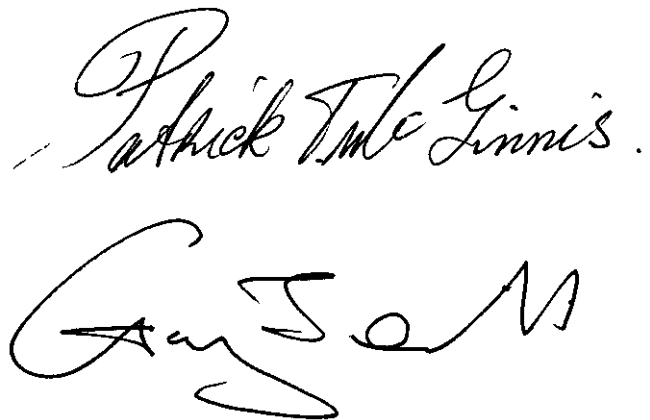 Patrick T Mc Ginnis.
Gary